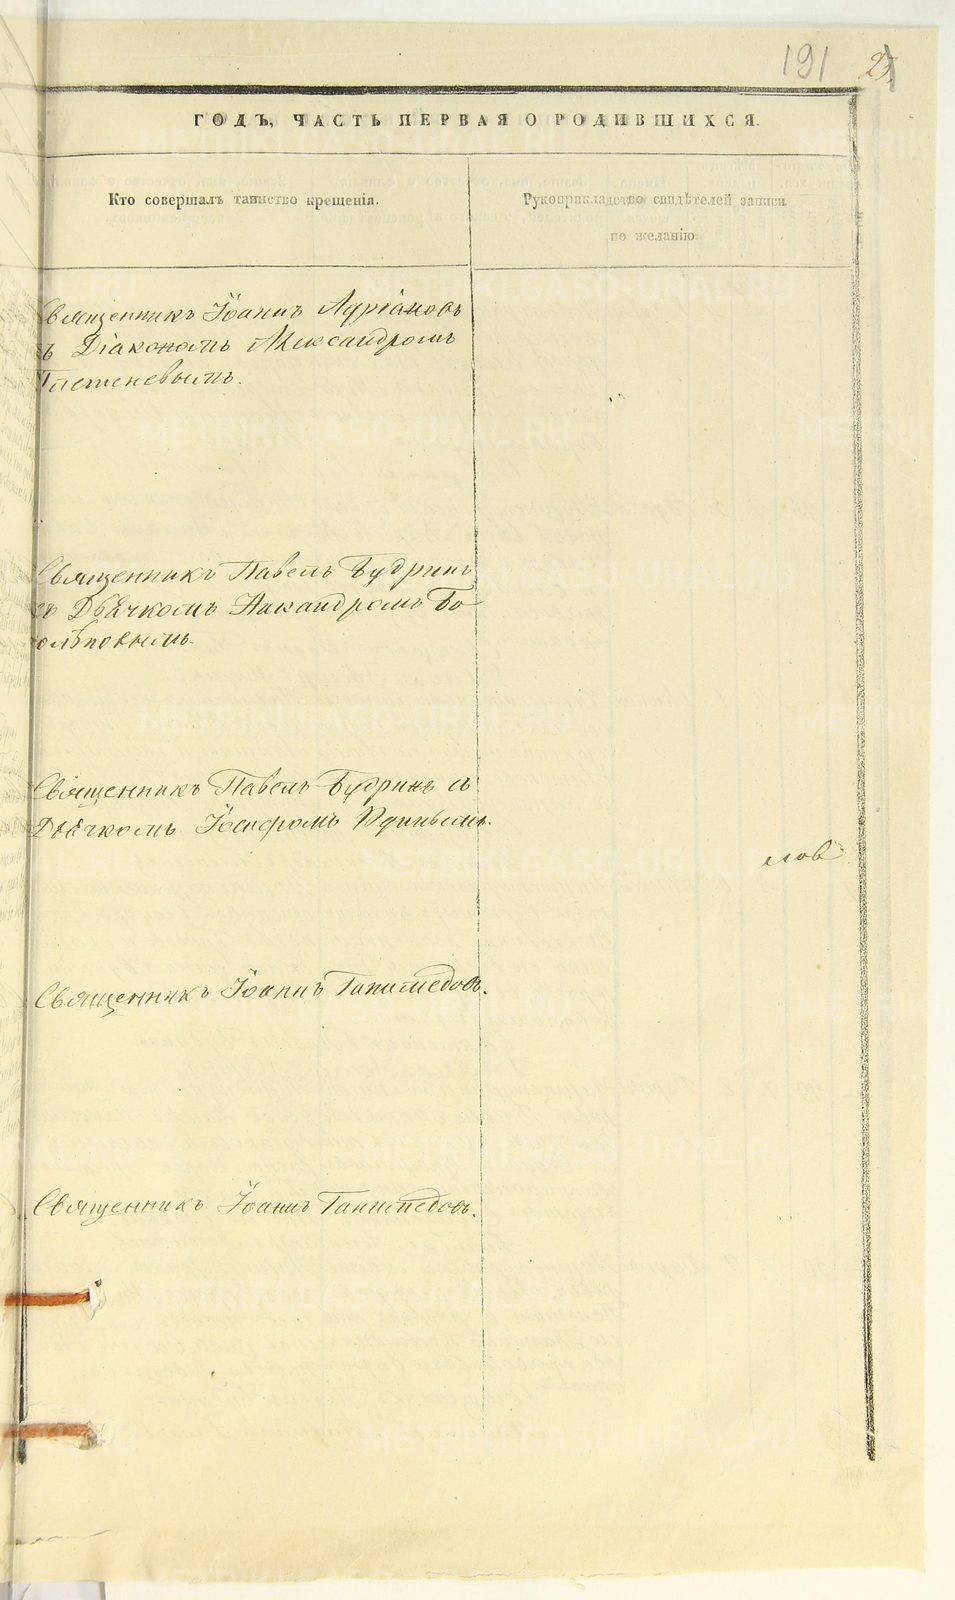 191
ГОДЪ, ЧАСТЬ ПЕРВАЯ О РОДИВШИХСЯ.
Кто совершалъ таинство крещенія.
Рукоприкладство свидѣтелей записи
по желанію
Священникъ Іоаннъ Адріановъ
ъ Діакономъ Александромъ
Плетеневымъ.
Священникъ Павелъ Будринъ
съ Дьячкомъ Никандромъ
Священникъ Павелъ Будринъ съ
Дьячкомъ Іосифомъ
лов
Священникъ Іоаннъ Ганимедовъ.
Священникъ Іоаннъ Ганимедовъ.
METRIKI.GASO-URAL.RU